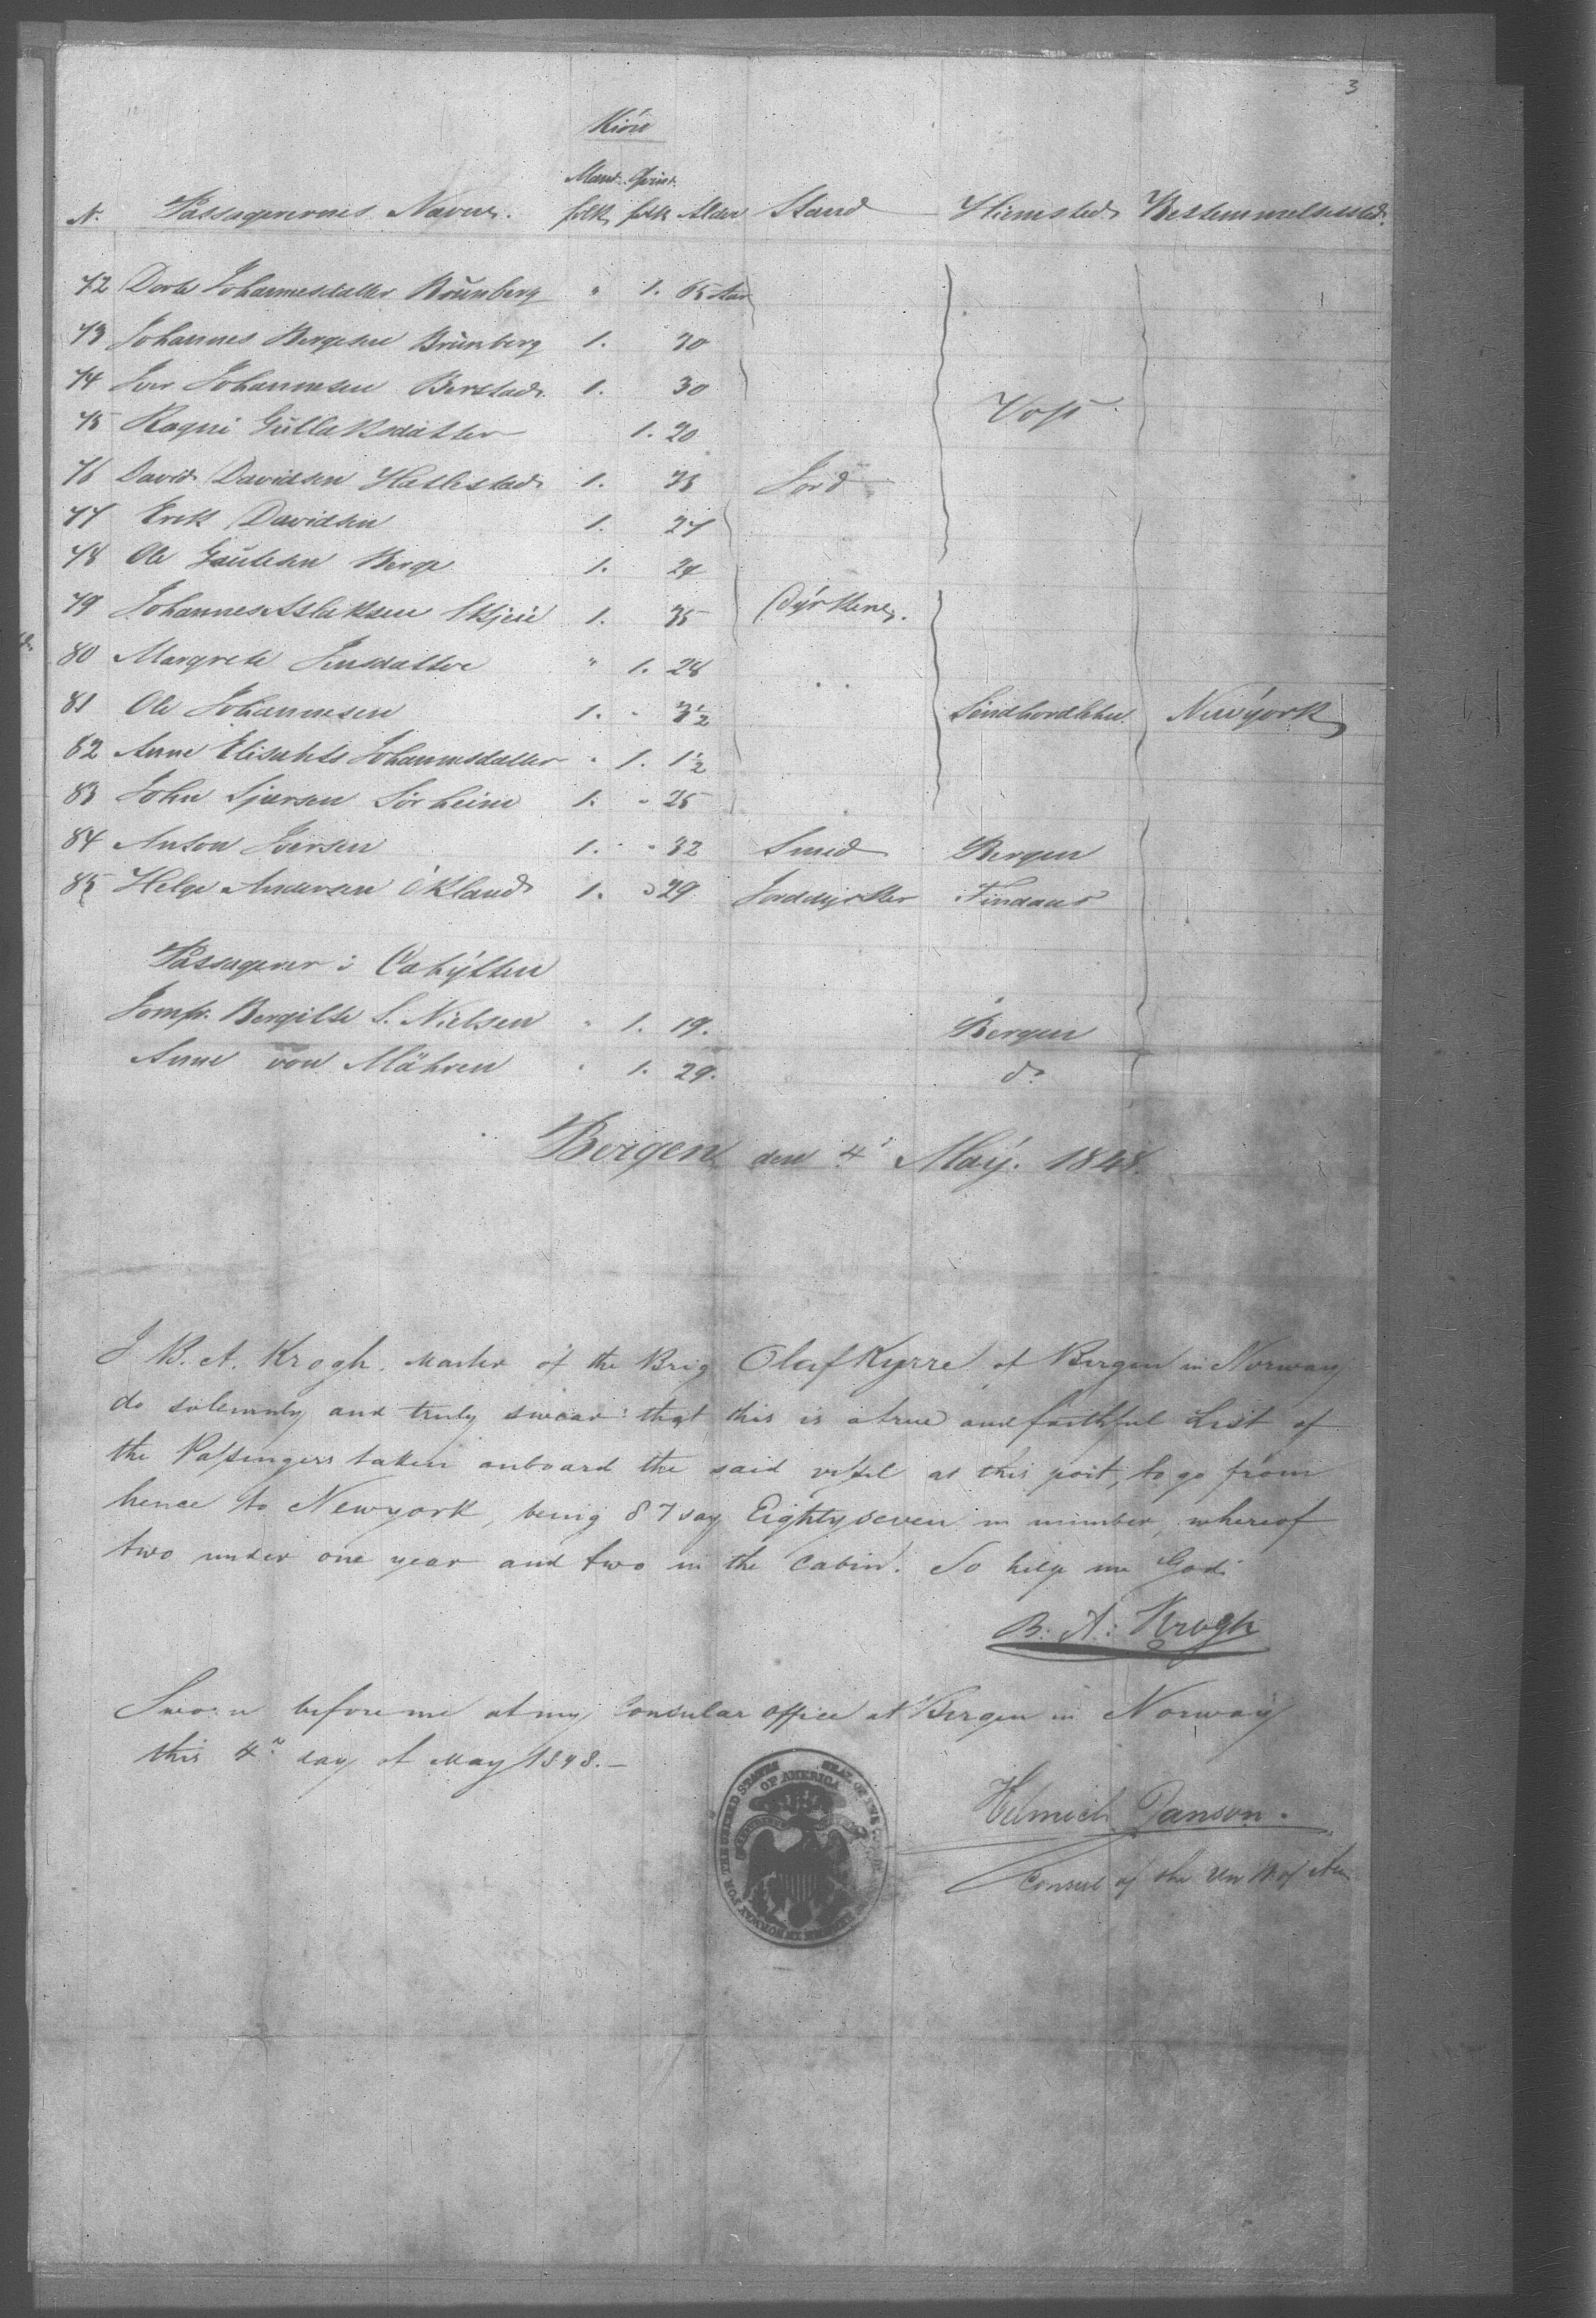 3
Kiön
Mand- Qvind-
N. Passagerernes Navne. folk folk Alder Stand Hiemsted Bestemmelsessted.
72 Dorte Johannesdatter Brünberg " 1. 65 Aar
73 Johannes Bergesen Brünberg 1. 30
74 Iver Johannesen Berstad. 1. 30
Voss.
75 Ragni Gullaksdatter 1. 20
76 David Davidsen Hatlestad 1. 33 Jord
77 Erik Davidsen 1. 27
78 Ole Gautesen Berge 1. 24
79 Johannes Aslaksen Skjeie 1. 35 Dyrkere.
80 Margrete Jensdatter " 1. 28
81 Ole Johannesen 1. " 3½ Söndhordlehn. Newÿork
82 Anne Elisabeth Johannesdatter " 1. 1½
83 John Sjursen Sörheim 1. " 25
84 Anton Iversen 1. " 32 Smed Bergen
85 Helge Andersen Ökland 1. " 29 Jorddyrker Findaas
Passagerer i Cahÿtten
Jomfr. Bergitte S. Nielsen " 1. 19. Bergen
Anne von Mähren " 1. 29. do
Bergen den 4' Maÿ. 1848.
I B. A. Krogh. Master of the Brig Olaf Kyrre of Bergen in Norway
do solemnly and truly swear that this is a true and faithful List of
the Passengers taken onboard the said vessel at this port, to go from
hence to Newyork, being 87 say Eightyseven in number, whereof
two under one year and two in the Cabin. So help me God
B: A: Krogh
Sworn before me at my Consular office at Bergen in Norway
this 4th day of May 1848.—
SEAL OF THE
FOR THE UNITED STATES
OF AMERICA
IN NORWAY
Helmich Janson.
Consul of the Un St of Am